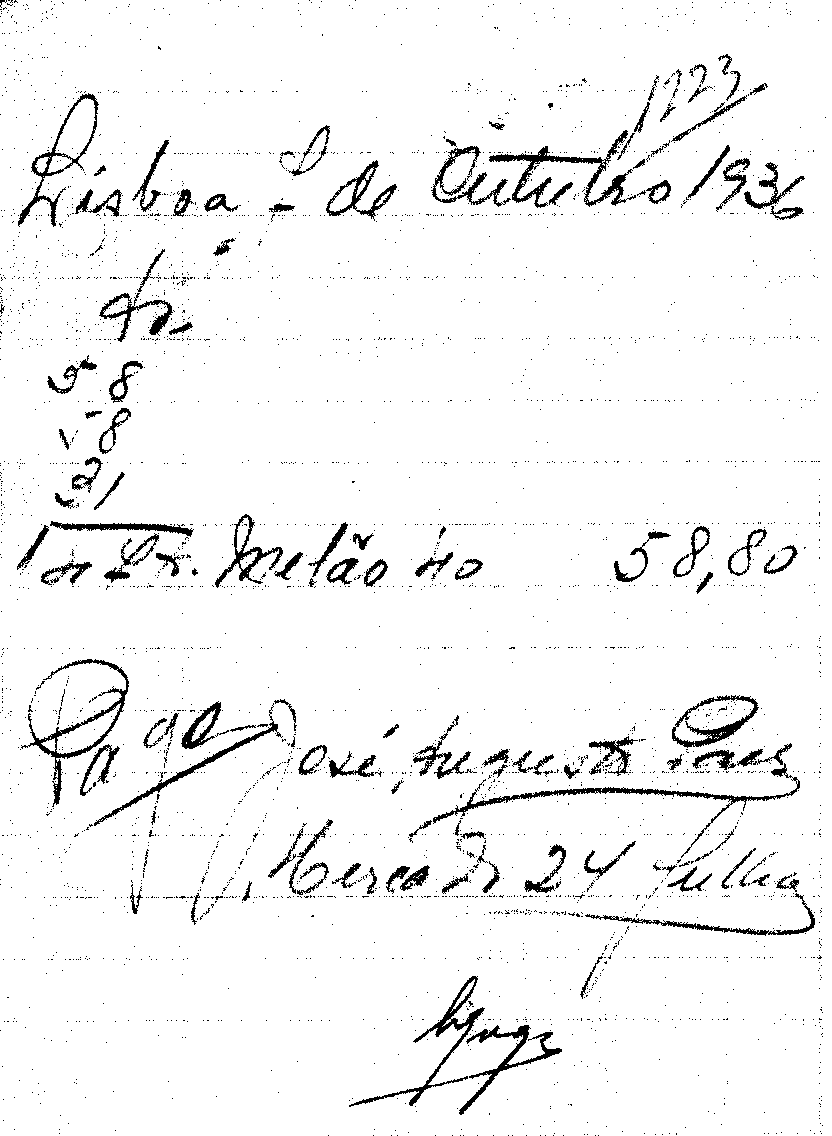 1223
Lisboa de Outubro 1936
58
58
31
Melão 40 58,80
Pago José Augusto Paes
Mercado 24 Julho